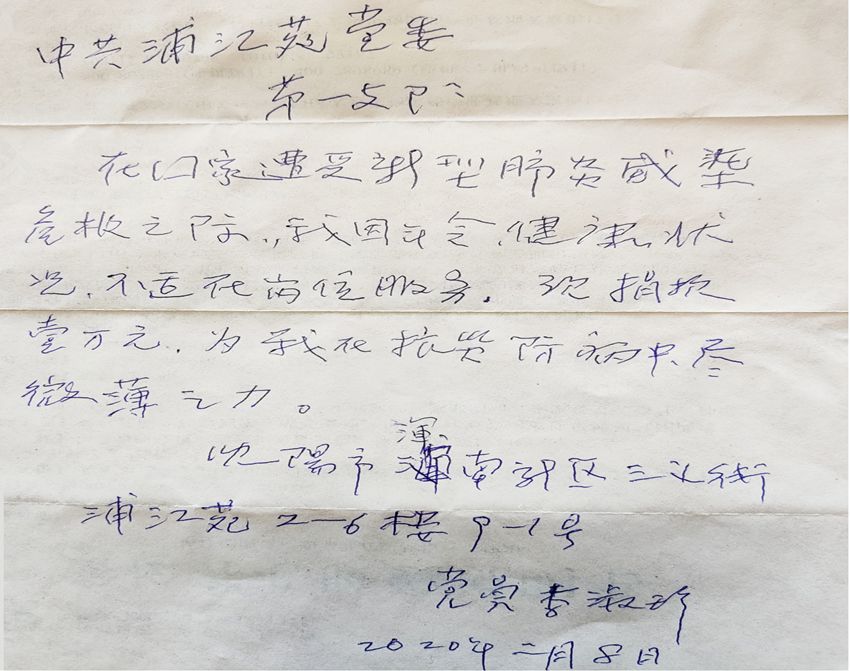 中共浦江苑党委
第一支部:
在国家遭受新型肺炎感染
危机之际,我因年令、健康状
况,不适在岗位服务。现捐款
壹万元,为我在抗灾防病中尽
微薄之力。
沈阳市浑南新区三义街
浦江苑2-6楼9-1号
党员李淑珍
2020年二月8日